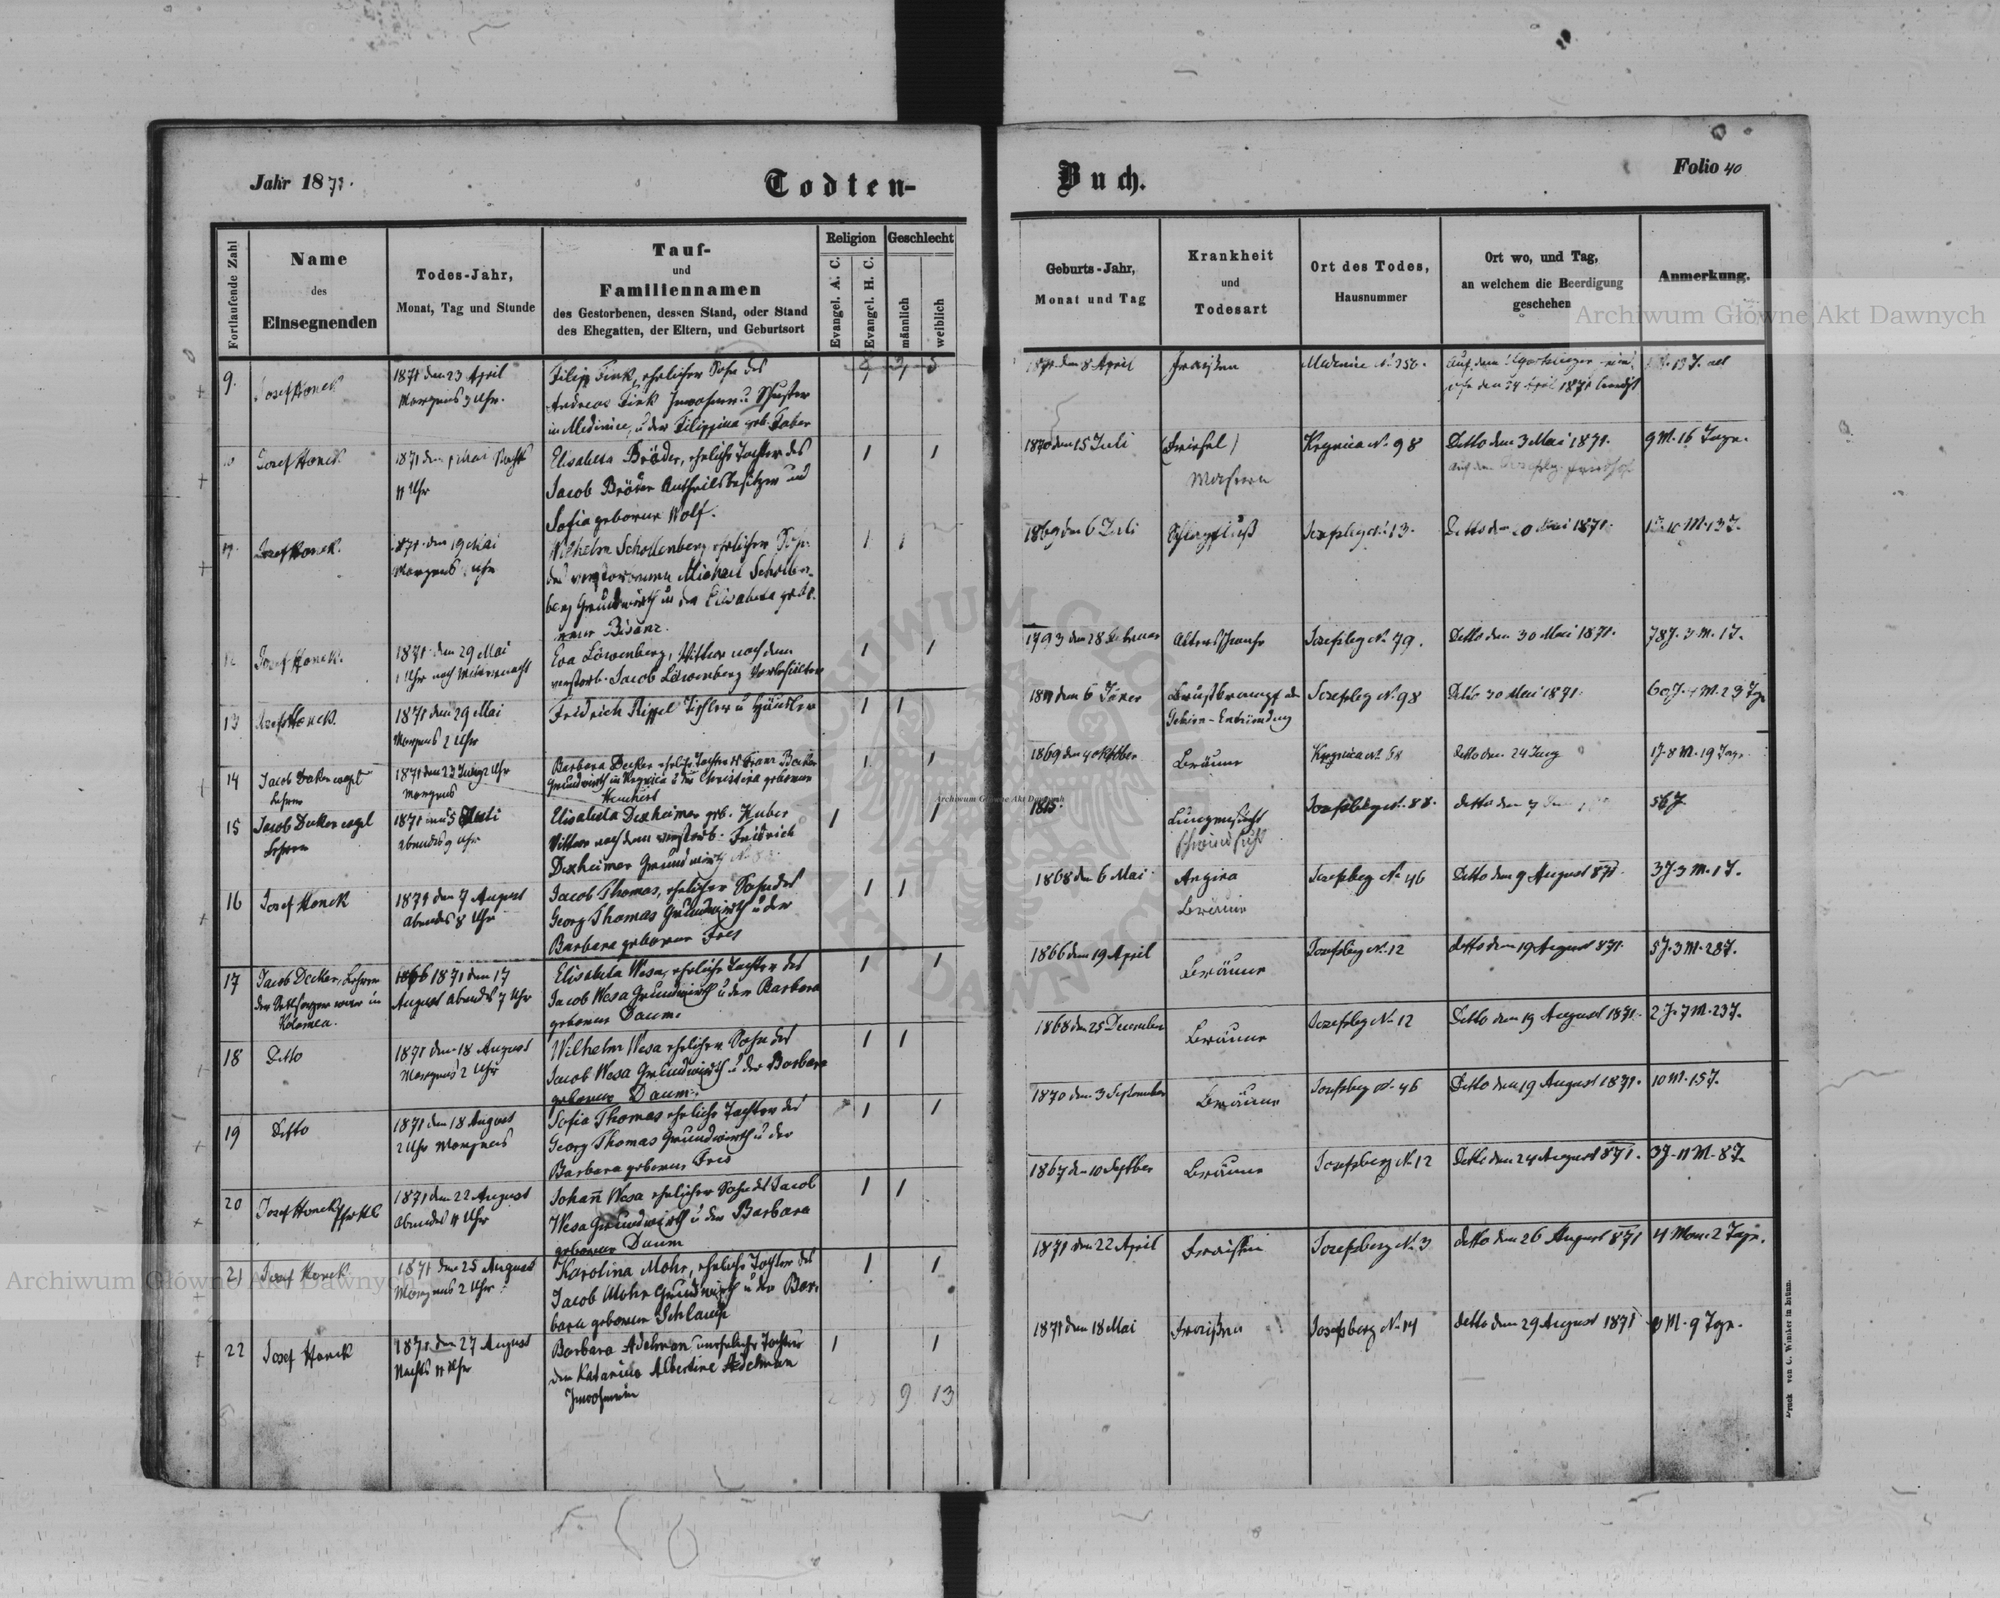 Jahr 1871.
Todten-
Buch.
Folio 40
Fortlaufende Zahl
Name
des
Einsegnenden
Todes-Jahr,
Monat, Tag und Stunde
Tauf-
und
Familiennamen
des Gestorbenen, dessen Stand, oder Stand
des Ehegatten, der Eltern, und Geburtsort
Religion
Evangel. A. C.
Evangel. H. C.
Geschlecht
männlich
weiblich
Geburts-Jahr,
Monat und Tag
Krankheit
und
Todesart
Ort des Todes,
Hausnummer
Ort wo, und Tag,
an welchem die Beerdigung
geschehen
Anmerkung.
9.
Josef Honek
1871 den 23 April
Morgens 3 Uhr.
Filipp Fink, ehelicher Sohn des
Andreas Fink Inwohner u Schuster
in Medinice, u der Filippina geb. Faber
den 8 April
Fraisen
Medenice N. 256.
1871
Josef Honek
1871 den 1 Mai Nachts
11 Uhr
Elisabeta Bröder, eheliche Tochter des
Jacob Bröder Antheilsbesitzer und
Sofia geborne Wolf.
1870 den 15 Juli
(Friesel)
Masern
Krynica N. 98
Detto den 3 Mai 1871.
9 M. 16 Tage.
Josef Honek.
1871 den 19 Mai
Morgens Uhr
Wilhelm Schollenberg ehelicher Sohn
des verstorbenen Michael Schollen-
berg Grundwirth u der Elisabeta gebo-
rene Bisanz.
1869 den 6 Juli
Schlagfluß
Josefsberg N. 13.
Detto den 20 Mai 1871.
1 J. 10 M. 13 T.
Josef Honek.
1871 den 29 Mai
1 Uhr nach Mitternacht
Eva Löwenberg, Wittwe nach dem
verstorb. Jacob Löwenberg
1793 den 28 Februar
Altersschwäche
Josefsbeg N. 79.
Detto den 30 Mai 1871.
78 J. 3 M. 1 T.
13
Josef Honek
1871 den 29 Mai
Morgens 2 Uhr
Fridrich Rippel Tischler u Häusler
den 6 Jäner
Brustkrampf
Gehirn-Entzündung
Josefsbeg N. 98
Detto 30 Mai 1871.
60 J. 4 M. 23 Tage
14
Jacob Decker evegl
Lehrer
1871 den 23 Juny 2 Uhr
Morgens
Barbara Decker eheliche Tochter des Franz Decker
Grundwirth in Krynica u der Christina geborne
1869 den 4 Oktober
Bräune
Krynica N. 58
detto den 24 Juny
1 J. 8 M. 19 Tage
15
Jacob Decker evegl
Lehrer
1871 den 5 Juli
abends 9 Uhr
Elisabeta Dexheimer geb. Huber
Wittwe nach dem verstorb. Fridrich
Dexheimer Grundwirth
Lungensucht
Schwindsucht
Josefsbeg N. 88.
detto den 7
56 J
16
Josef Honek
1871 den 7 August
abends 8 Uhr
Jacob Thomas, ehelicher Sohn des
Georg Thomas Grundwirth u der
Barbara geborne Fres
1868 den 6 Mai
Angina
Bräune
Josefsbeg N. 46
Detto den 9 August 871
3 J. 3 M. 1 T.
17
Jacob Decker, Lehrer
der Seelsorger war in
Kolomea.
1871 den 17
August abends 7 Uhr
Elisabeta Wesa, eheliche Tochter des
Jacob Wesa Grundwirth u der Barbara
geborne Daum.
1866 den 19 April
Bräune
Josefsbeg N. 12
detto den 19 August 871.
5 J. 3 M. 28 T.
18
Ditto
1871 den 18 August
Morgens 2 Uhr
Wilhelm Wesa ehelicher Sohn des
Jacob Wesa Grundwirth u der Barbara
geborne Daum.
1868 den 25 December
Bräune
Josefsbeg N. 12
Detto den 19 August 1871.
2 J. 7 M. 23 T.
19
Ditto
1871 den 18 August
2 Uhr Morgens
Sofia Thomas eheliche Tochter des
Georg Thomas Grundwirth u der
Barbara geborne Fres
1870 den 3 September
Bräune
Josefsbeg N. 46
Detto den 19 August 1871.
10 M. 15 T.
20
Josef Honek
1871 den 22 August
abends 11 Uhr
Johann Wesa ehelicher Sohn des Jacob
Wesa Grundwirth u der Barbara
geborne Daum
1867 den 10 Septber
Bräune
Josefsberg N. 12
Detto den 24 August 871.
3 J. 11 M. 8 T.
21
Josef Honek
1871 den 25 August
Morgens 2 Uhr
Karolina Mohr, eheliche Tochter des
Jacob Mohr Grundwirth u der Bar-
bara geborene Schlamp
1871 den 22 April
Fraisen
Josefsberg N. 3
detto den 26 August 871
4 Mon. 2 Tage.
22
Josef Honek
1871 den 27 August
Nachts 11 Uhr
Barbara Adelman uneheliche Tochter
der Katarina Albertine Adelman
Inwohnerin
1871 den 18 Mai
Fraisen
Josefsberg N. 14
detto den 29 August 1871
M. 9 Tage.
9 13
Druck von C. Winiker in Brünn.
Archiwum Główne Akt Dawnych
Archiwum Główne Akt Dawnych
Archiwum Główne Akt Dawnych
ARCHIWUM GŁÓWNE AKT DAWNYCH